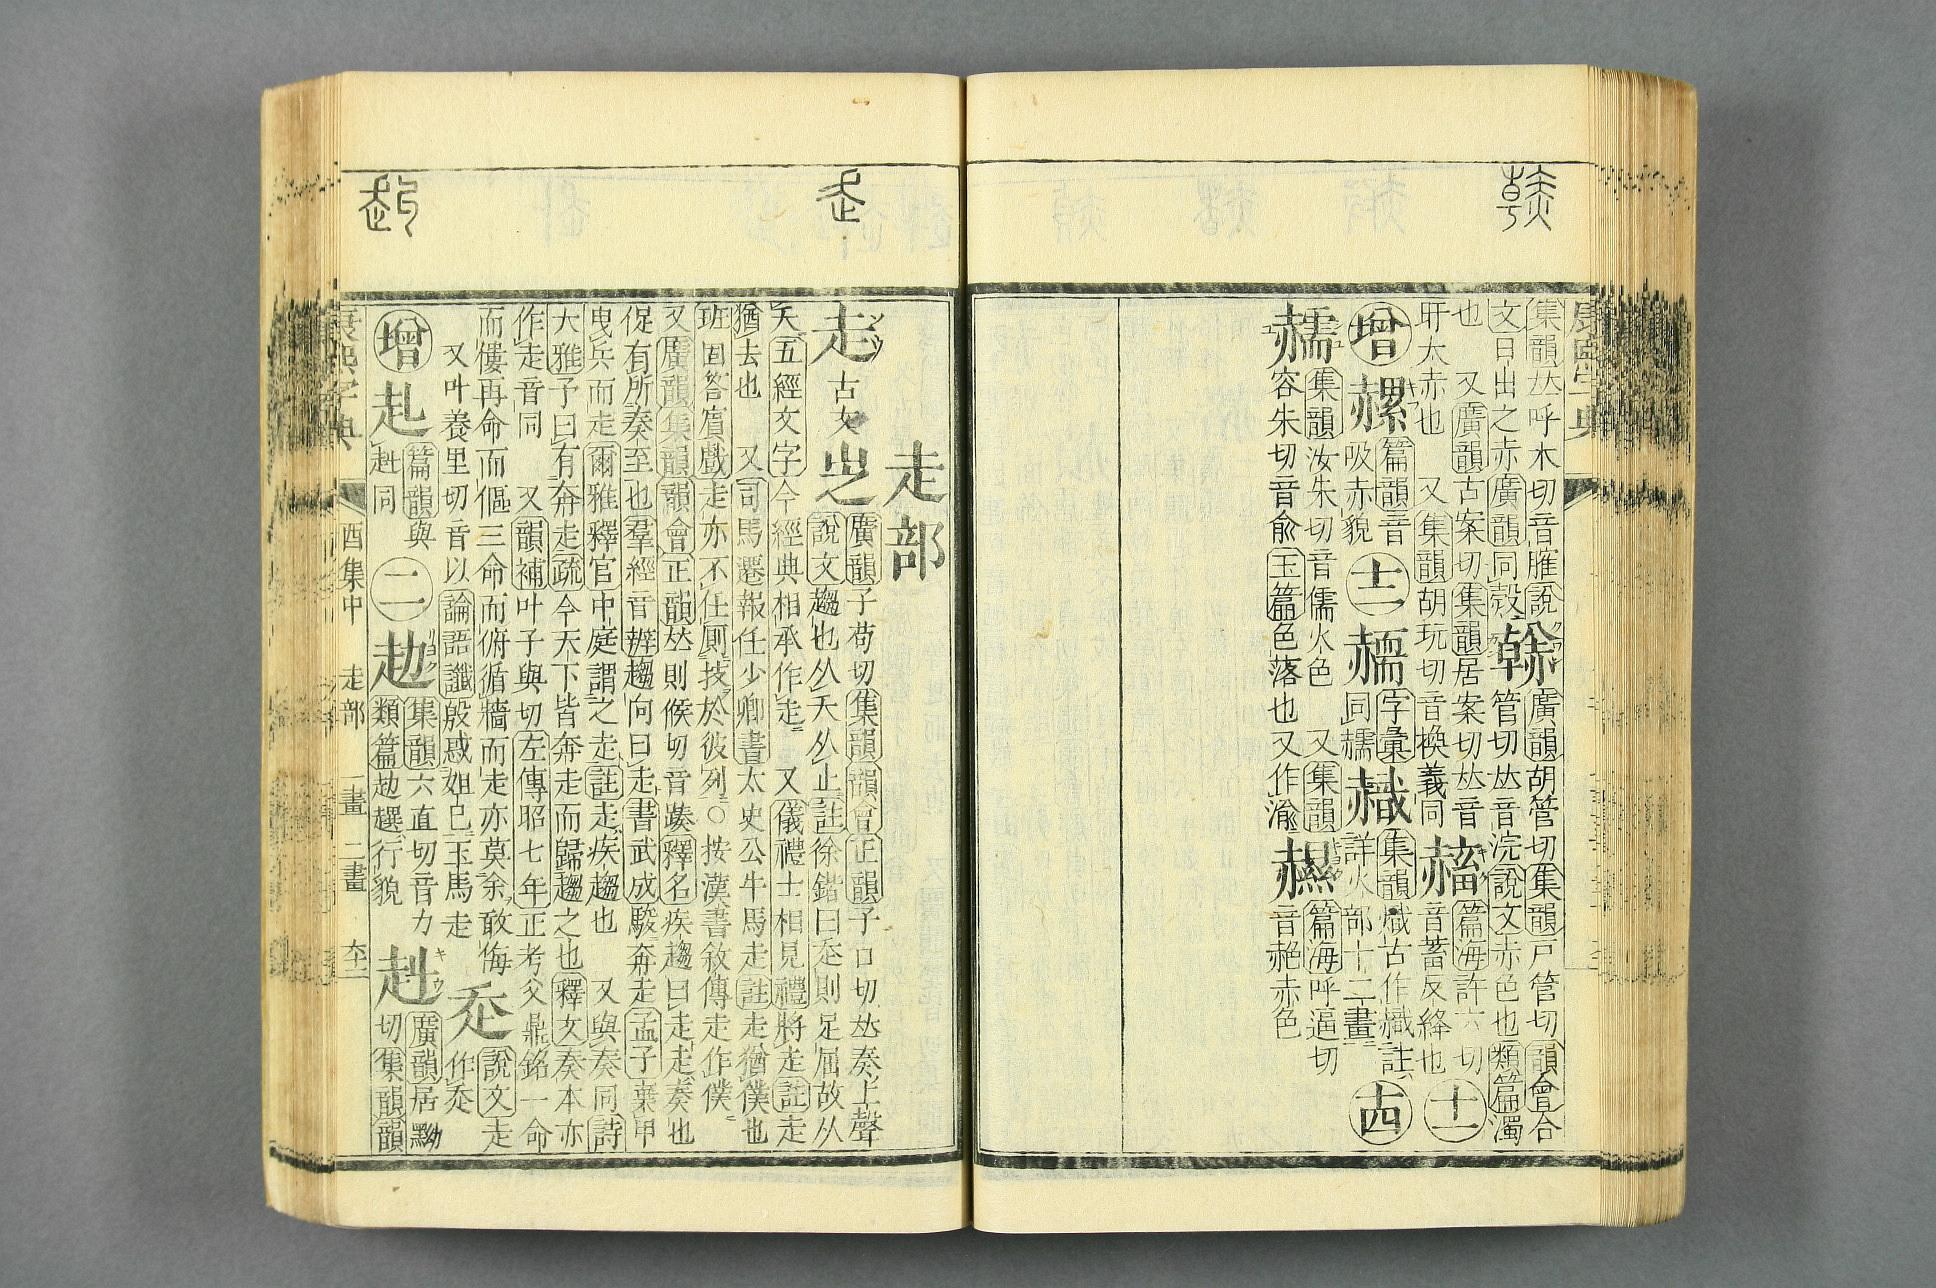 集韻𠀤呼木切音臛說
文日出之赤廣韻同㲄
𧹳
廣韻胡管切集韻戸管切韻會合
管切𠀤音浣說文赤色也類篇濁
也 又廣韻古案切集韻居案切𠀤音
肝太赤也 又集韻胡玩切音換義同
篇海許六切
音蓄反絳也
十二
增
篇韻音
吸赤貌
十三
字彙
同
集韻熾古作
註
詳火部十二畫
十四
集韻汝朱切音儒火色 又集韻
容朱切音兪玉篇色落也又作
篇海呼逼切
音赩赤色
走部
走
古文
廣韻子苟切集韻韻會正韻子口切𠀤奏上聲
說文趨也从夭从止註徐鍇曰夭則足屈故从
夭五經文字今經典相承作走 又儀禮士相見禮將走註走
猶去也 又司馬遷報任少卿書太史公牛馬走註走猶僕也
班固答賔戲走亦不任厠技於彼列○按漢書敘傳走作僕
又廣韻集韻韻會正韻𠀤則候切音蹂釋名疾趨曰走走奏也
促有所奏至也羣經音辨趨向曰走書武成駿奔走孟子棄甲
曳兵而走爾雅釋宮中庭謂之走註走疾趨也 又與奏同詩
大雅予曰有奔走疏今天下皆奔走而歸趨之也釋文奏本亦
作走音同 又韻補叶子與切左傳昭七年正考父鼎銘一命
而僂再命而傴三命而俯循牆而走亦莫余敢侮
又叶養里切音以論語讖殷惑妲己玉馬走
說文走
作
增
赲
篇韻與
同
二
赲
集韻六直切音力
類篇赲趩行貌
赳
廣韻居黝
切集韻韻
康熙字典
酉集中
走部
一畫
二畫